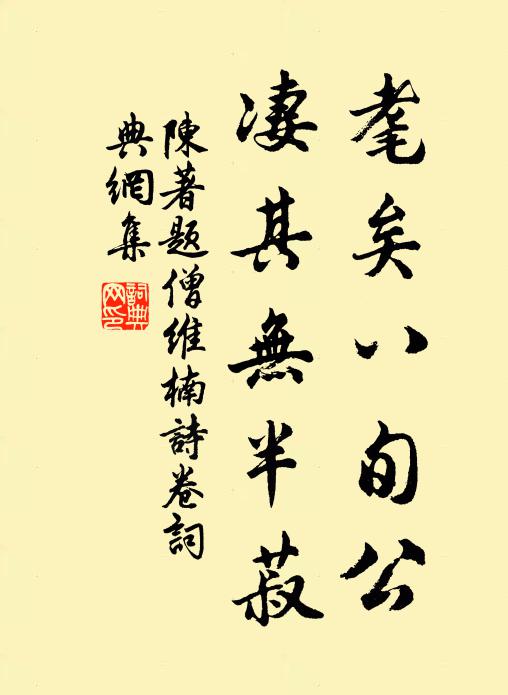 耄矣八旬公
凄其無半菽
陳著題僧維楠詩卷詞
典網集
詞典網印